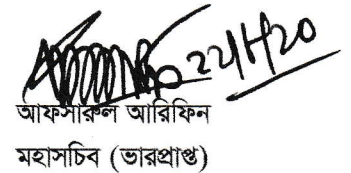 আফসারুল আরিফিন
মহাসচিব (ভারপ্রাপ্ত)